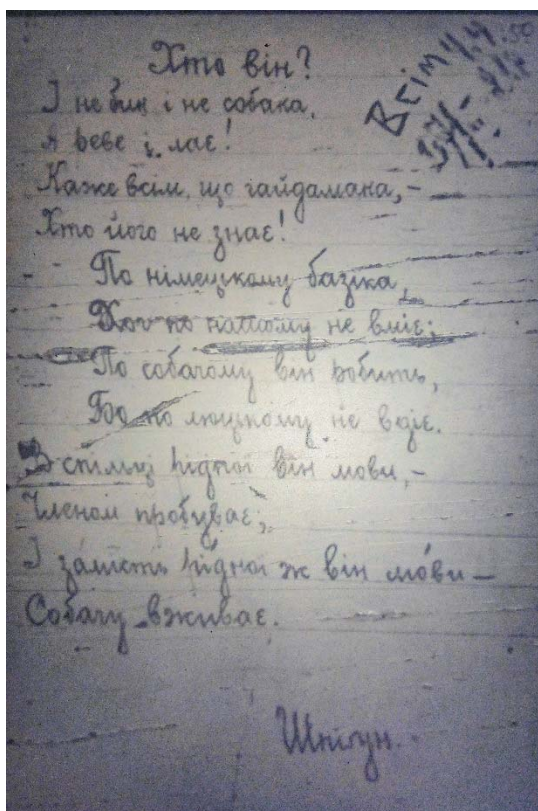 Хто він?
Всім
І не бик і не собака,
А реве і лає!
Каже всім, що гайдамака, –
Хто його не знає!
По німецкому базіка,
Хоч по нашому не вміє;
По собачому він робить,
Бо по люцкому не вдіє.
В спільці рідної він мови, –
Членом пробуває,
І замість рідної ж він мо́ви –
Собачу вживає.
Шпигун.